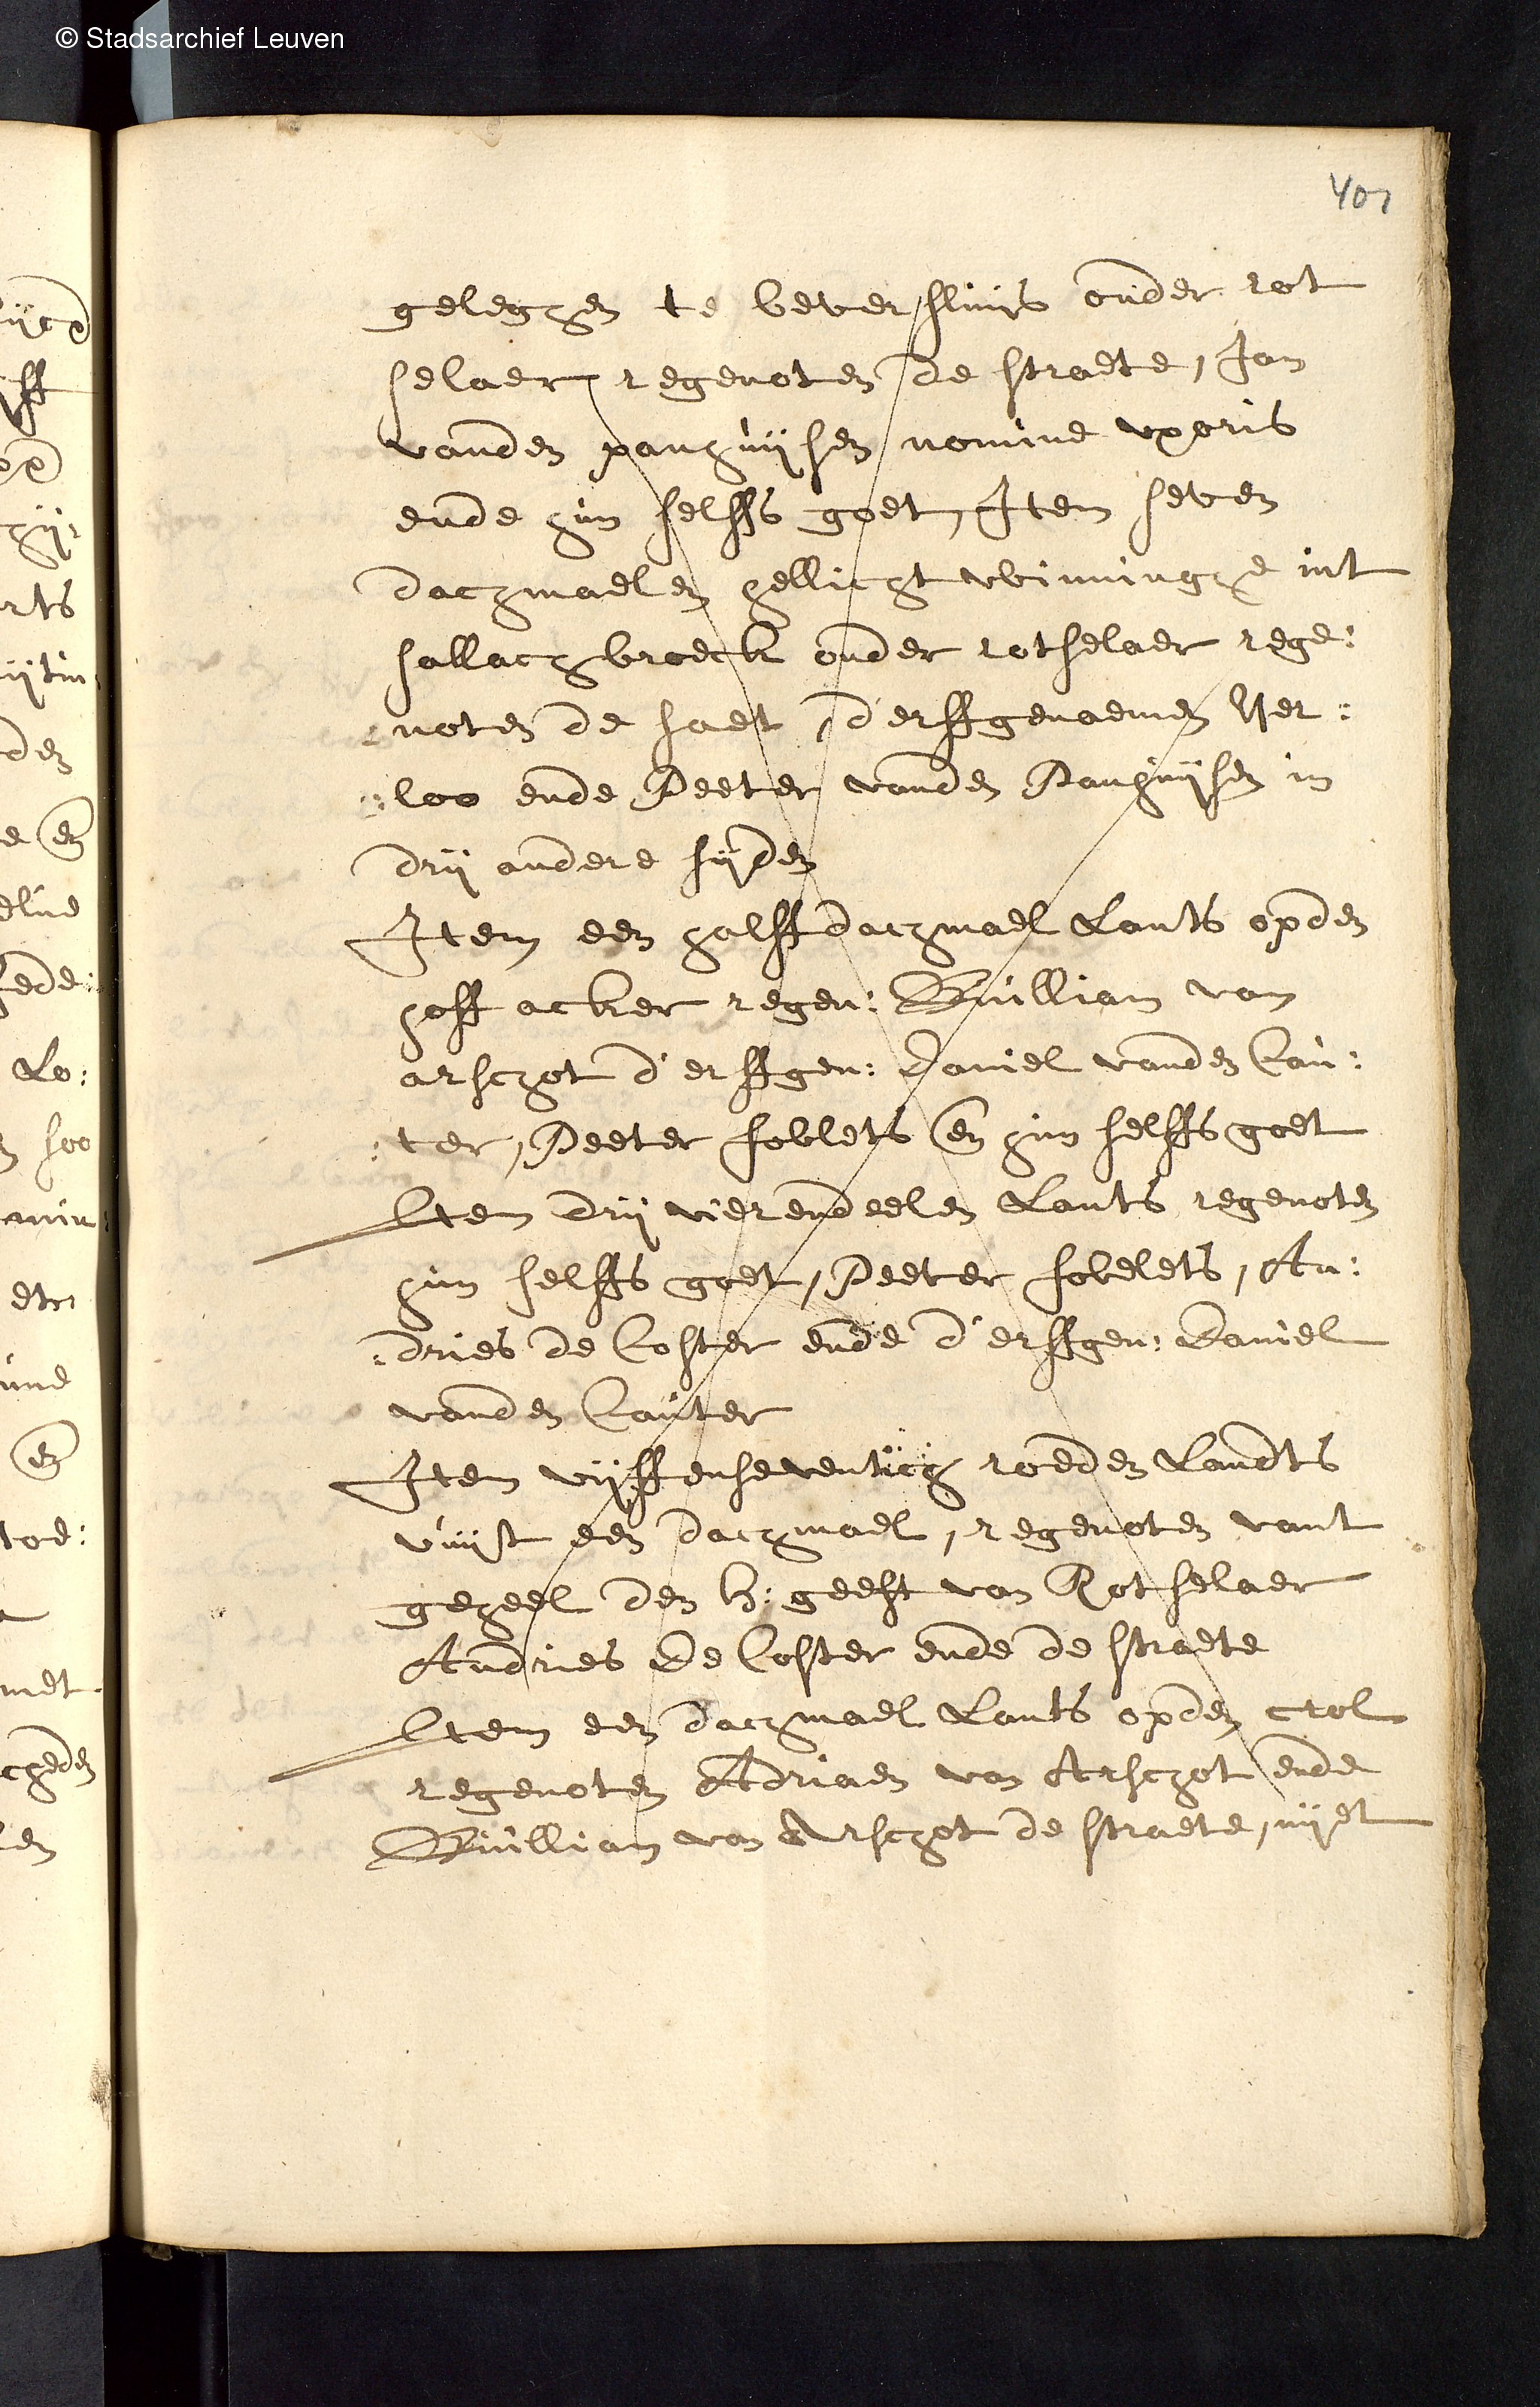 © Stadsarchief Leuven
401
geleghen te beversluijs onder rot
selaer, regenoten de straete, Jan
vanden panhuijsen nomine uxoris
ende hun selffs goet, Item seven
dachmaelen hellicht winninghe int
sallachbroeck onder rotselaer rege:
noten de saet, d'erffgenaemen Ver:
:loo ende Peeter vanden Panhuijsen in
drij andere sijden
Item een halff dachmael Lants opden
hoff acker regen: Guilliam van
arschot d'erffgen: Daniel vanden Cau:
:ter, Peeter foblets en hun selffs goet
Item drij vierendeelen Lants regenoten
hun selffs goet, Peeter fobelets, An:
:dries de Coster ende d'erffgen: Daniel
vanden Cauter
Item vijffenseventich roeden Landts
vuijt een dachmael, regenoten vant
geheel den h: geest van Rotselaer
Andries De Coster ende de straete
Item een dachmael Lants opden crol
regenoten Adriaen van Arschot ende
Guilliam van Arschot de straete, uijet